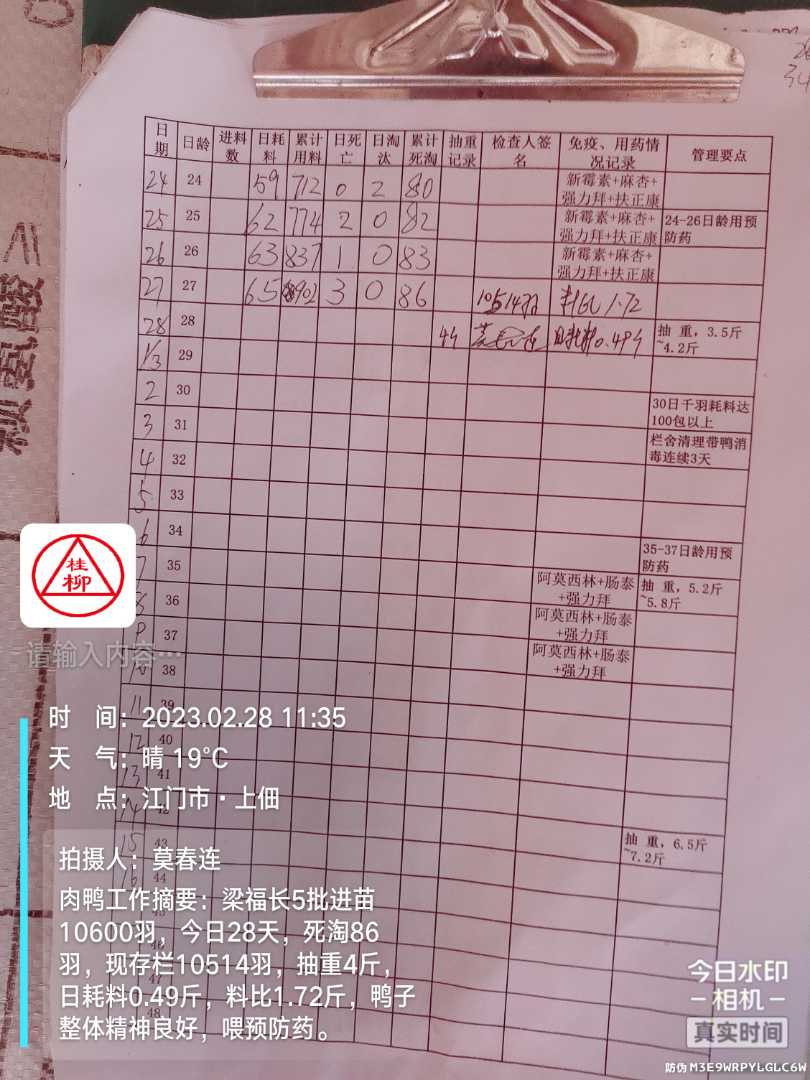 日期 日龄 进料数 日耗料 累计用料 日死亡 日淘汰 累计死淘 抽重记录 检查人签名 免疫、用药情况记录 管理要点
24 24 59 712 0 2 80 新霉素+麻杏+强力拜+扶正康
25 25 62 774 2 0 82 新霉素+麻杏+强力拜+扶正康 24-26日龄用预防药
26 26 63 837 1 0 83 新霉素+麻杏+强力拜+扶正康
27 27 65 902 3 0 86 10514羽 料比1.72
28 28 4斤 日耗料0.49斤 抽重，3.5斤~4.2斤
1/3 29
2 30 30日千羽耗料达100包以上
3 31 栏舍清理带鸭消毒连续3天
4 32
5 33
6 34
7 35 阿莫西林+肠泰+强力拜 35-37日龄用预防药
8 36 阿莫西林+肠泰+强力拜 抽重，5.2斤~5.8斤
9 37 阿莫西林+肠泰+强力拜
10 38
11 39
12 40
13 41
14 42
15 43 抽重，6.5斤~7.2斤
16 44
46
47
48
桂柳
请输入内容…
时 间：2023.02.28 11:35
天 气：晴 19℃
地 点：江门市·上佃
拍摄人：莫春连
肉鸭工作摘要：梁福长5批进苗
10600羽，今日28天，死淘86
羽，现存栏10514羽，抽重4斤，
日耗料0.49斤，料比1.72斤，鸭子
整体精神良好，喂预防药。
今日水印
相机
真实时间
防伪 M3E9WRPYLGLC6W